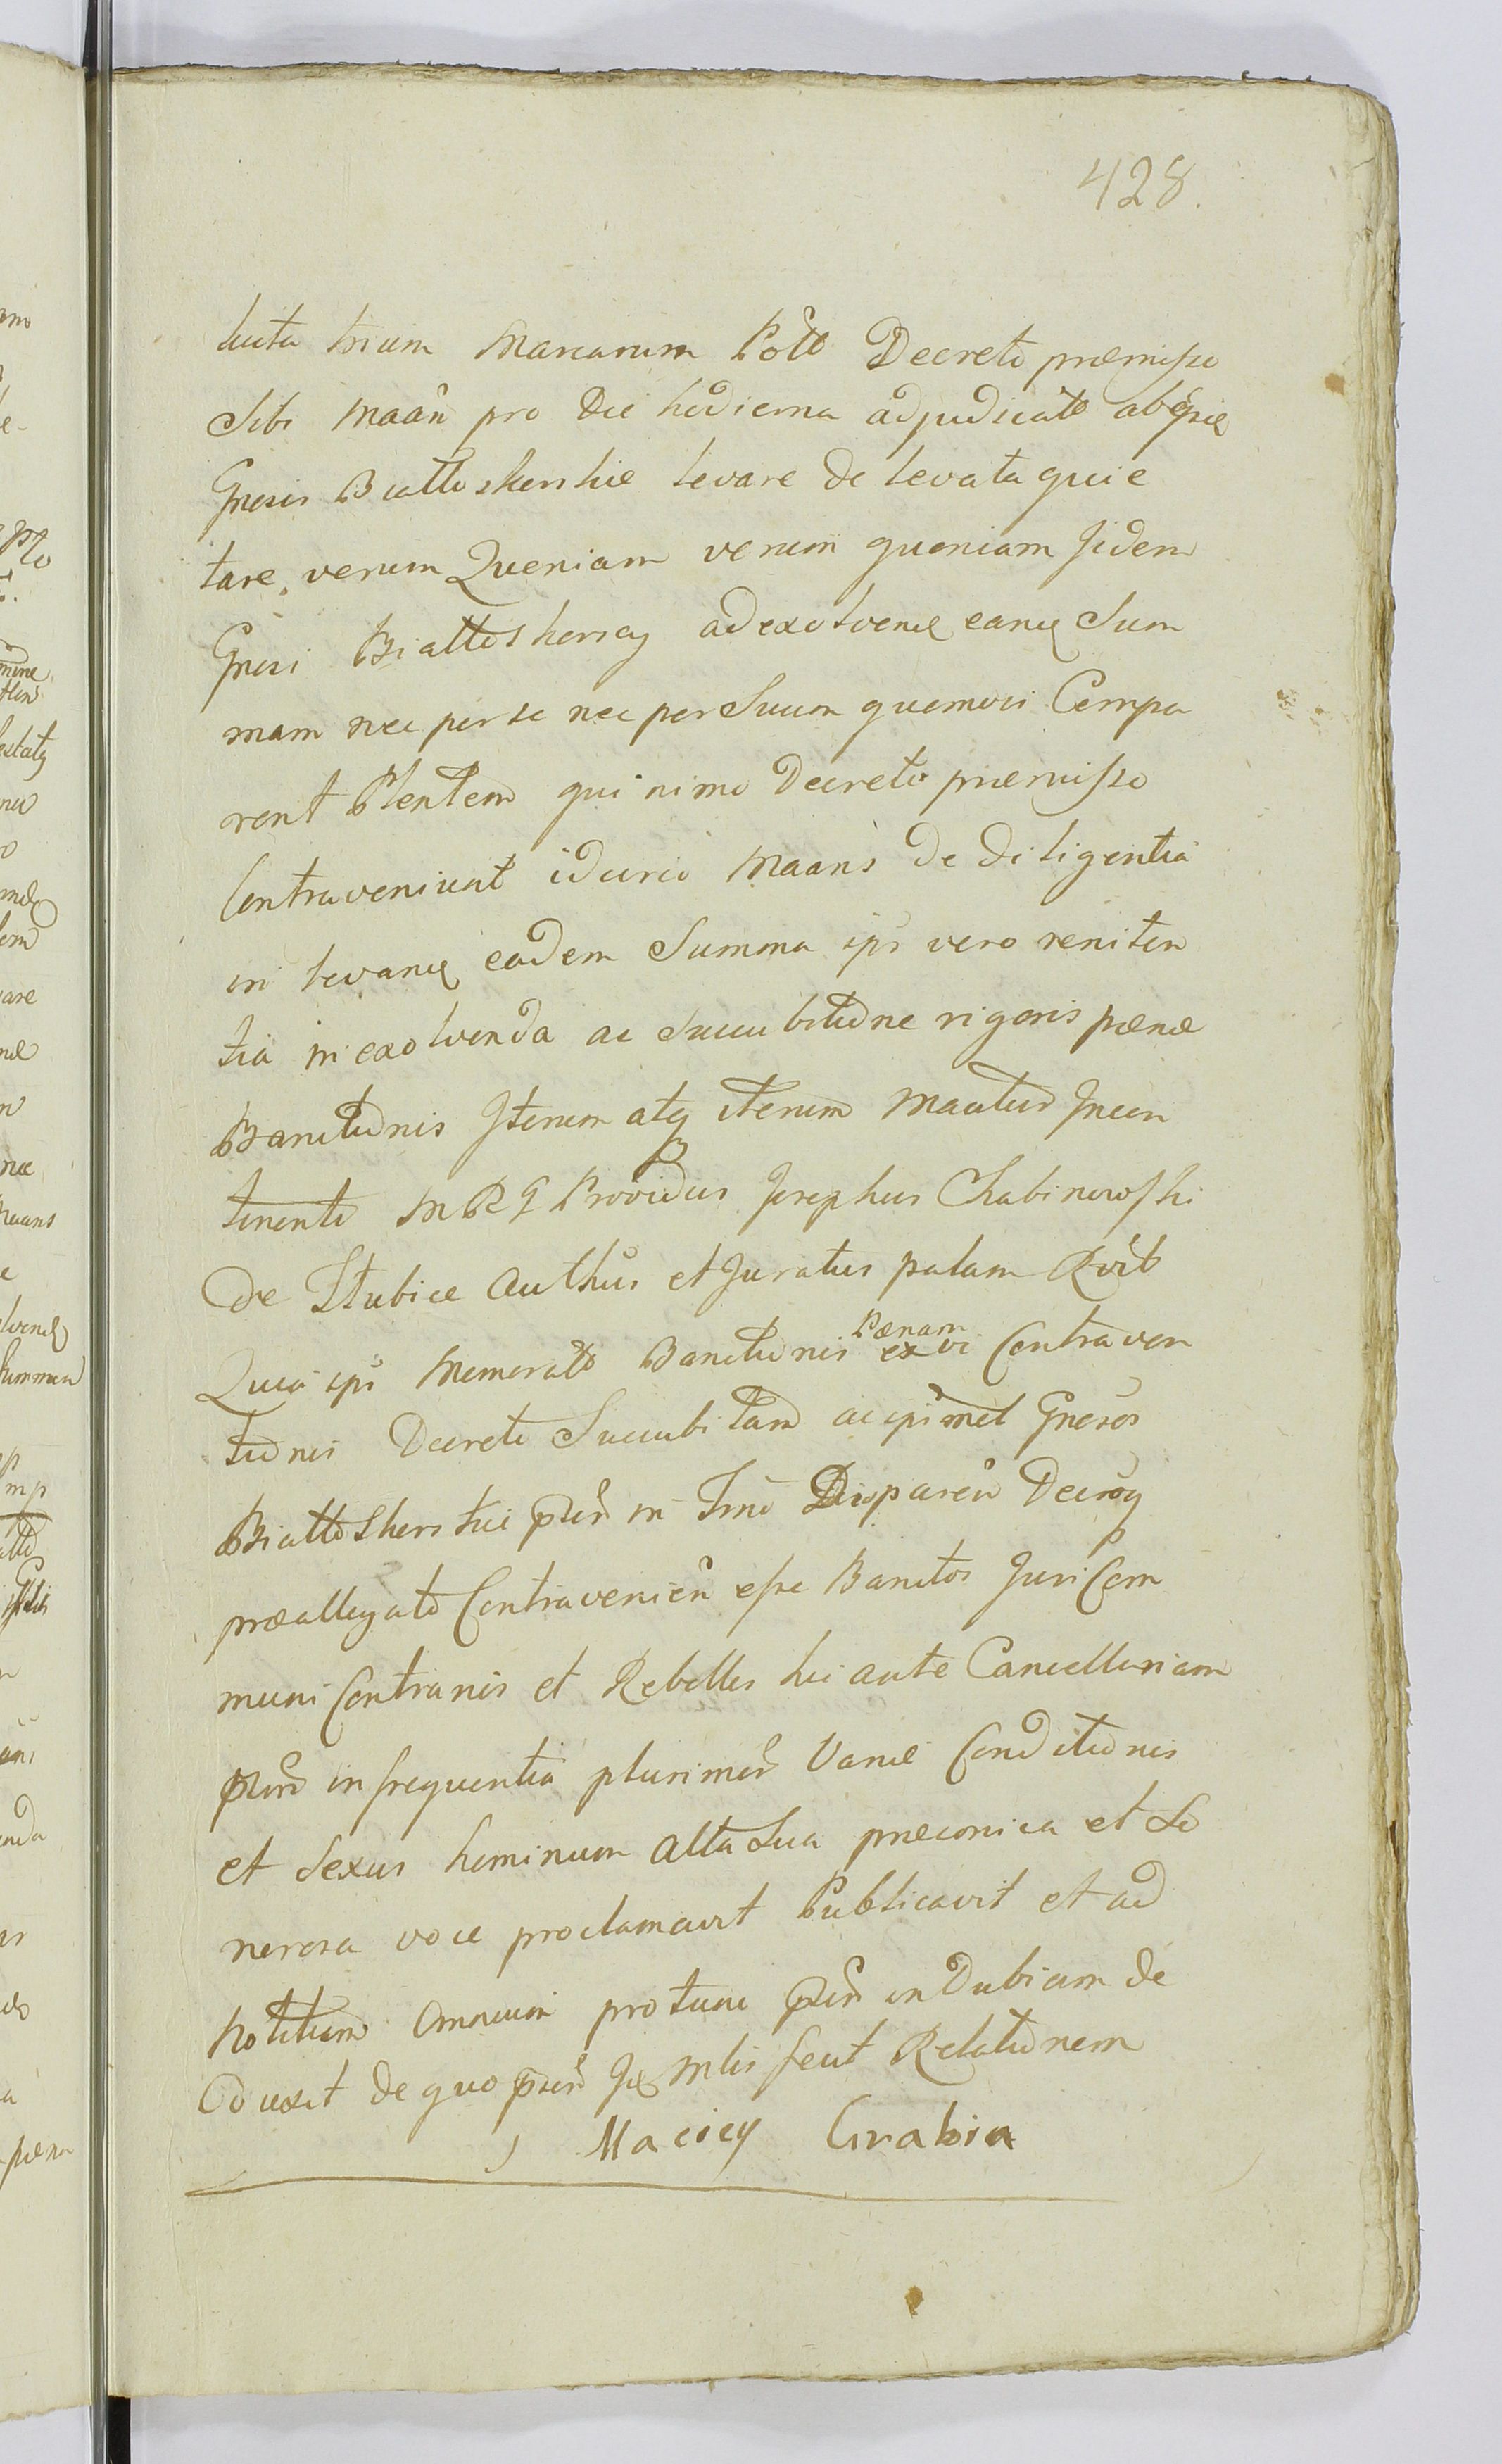 428.
luta trium Marcarum Poll Decreto præmisso
Sibi Maan pro Die hodierna adjudicato ab ipsis
Gnosis Biattoskorskie levare de levata quie
tare, verum Quoniam verum quoniam Jidem
Gnosi Biattoskorscy ad exolvend eand Sum
mam nec per se nec per Suum quemvis Compa
rent Plentem qui nimo Decreto præmisso
Contraveniunt idcirco Maans de diligentia
in levand eadem Summa ips vero reniten
tia in exolvenda ac Succubitione rigoris pænæ
Banitionis Iterum atq iterum Mantur Incon
tinenti M R G Providus Josephus Chabinowski
de Stubice Authus et Juratus palam Rvit
Quia ips Memorato Banitionis Pænam ex vi Contraven
tionis Decreti Succubitam ac ipsmet Gnosos
Biattoskorskie psen in Tmo Disparen Decroq
præallegato Contravenien esse Banitos Juri Com
muni Contrarios et Rebelles hic ante Cancellariam
psem in frequentia plurimor Variæ Conditionis
et Sexus hominum alta Sua præconica et So
norosa voce proclamavit Publicavit et ad
notitiam Omnium pro tunc psen indubiam de
Duxit de quo psen Jx Mlis fecit Relationem
Maciey Grabia